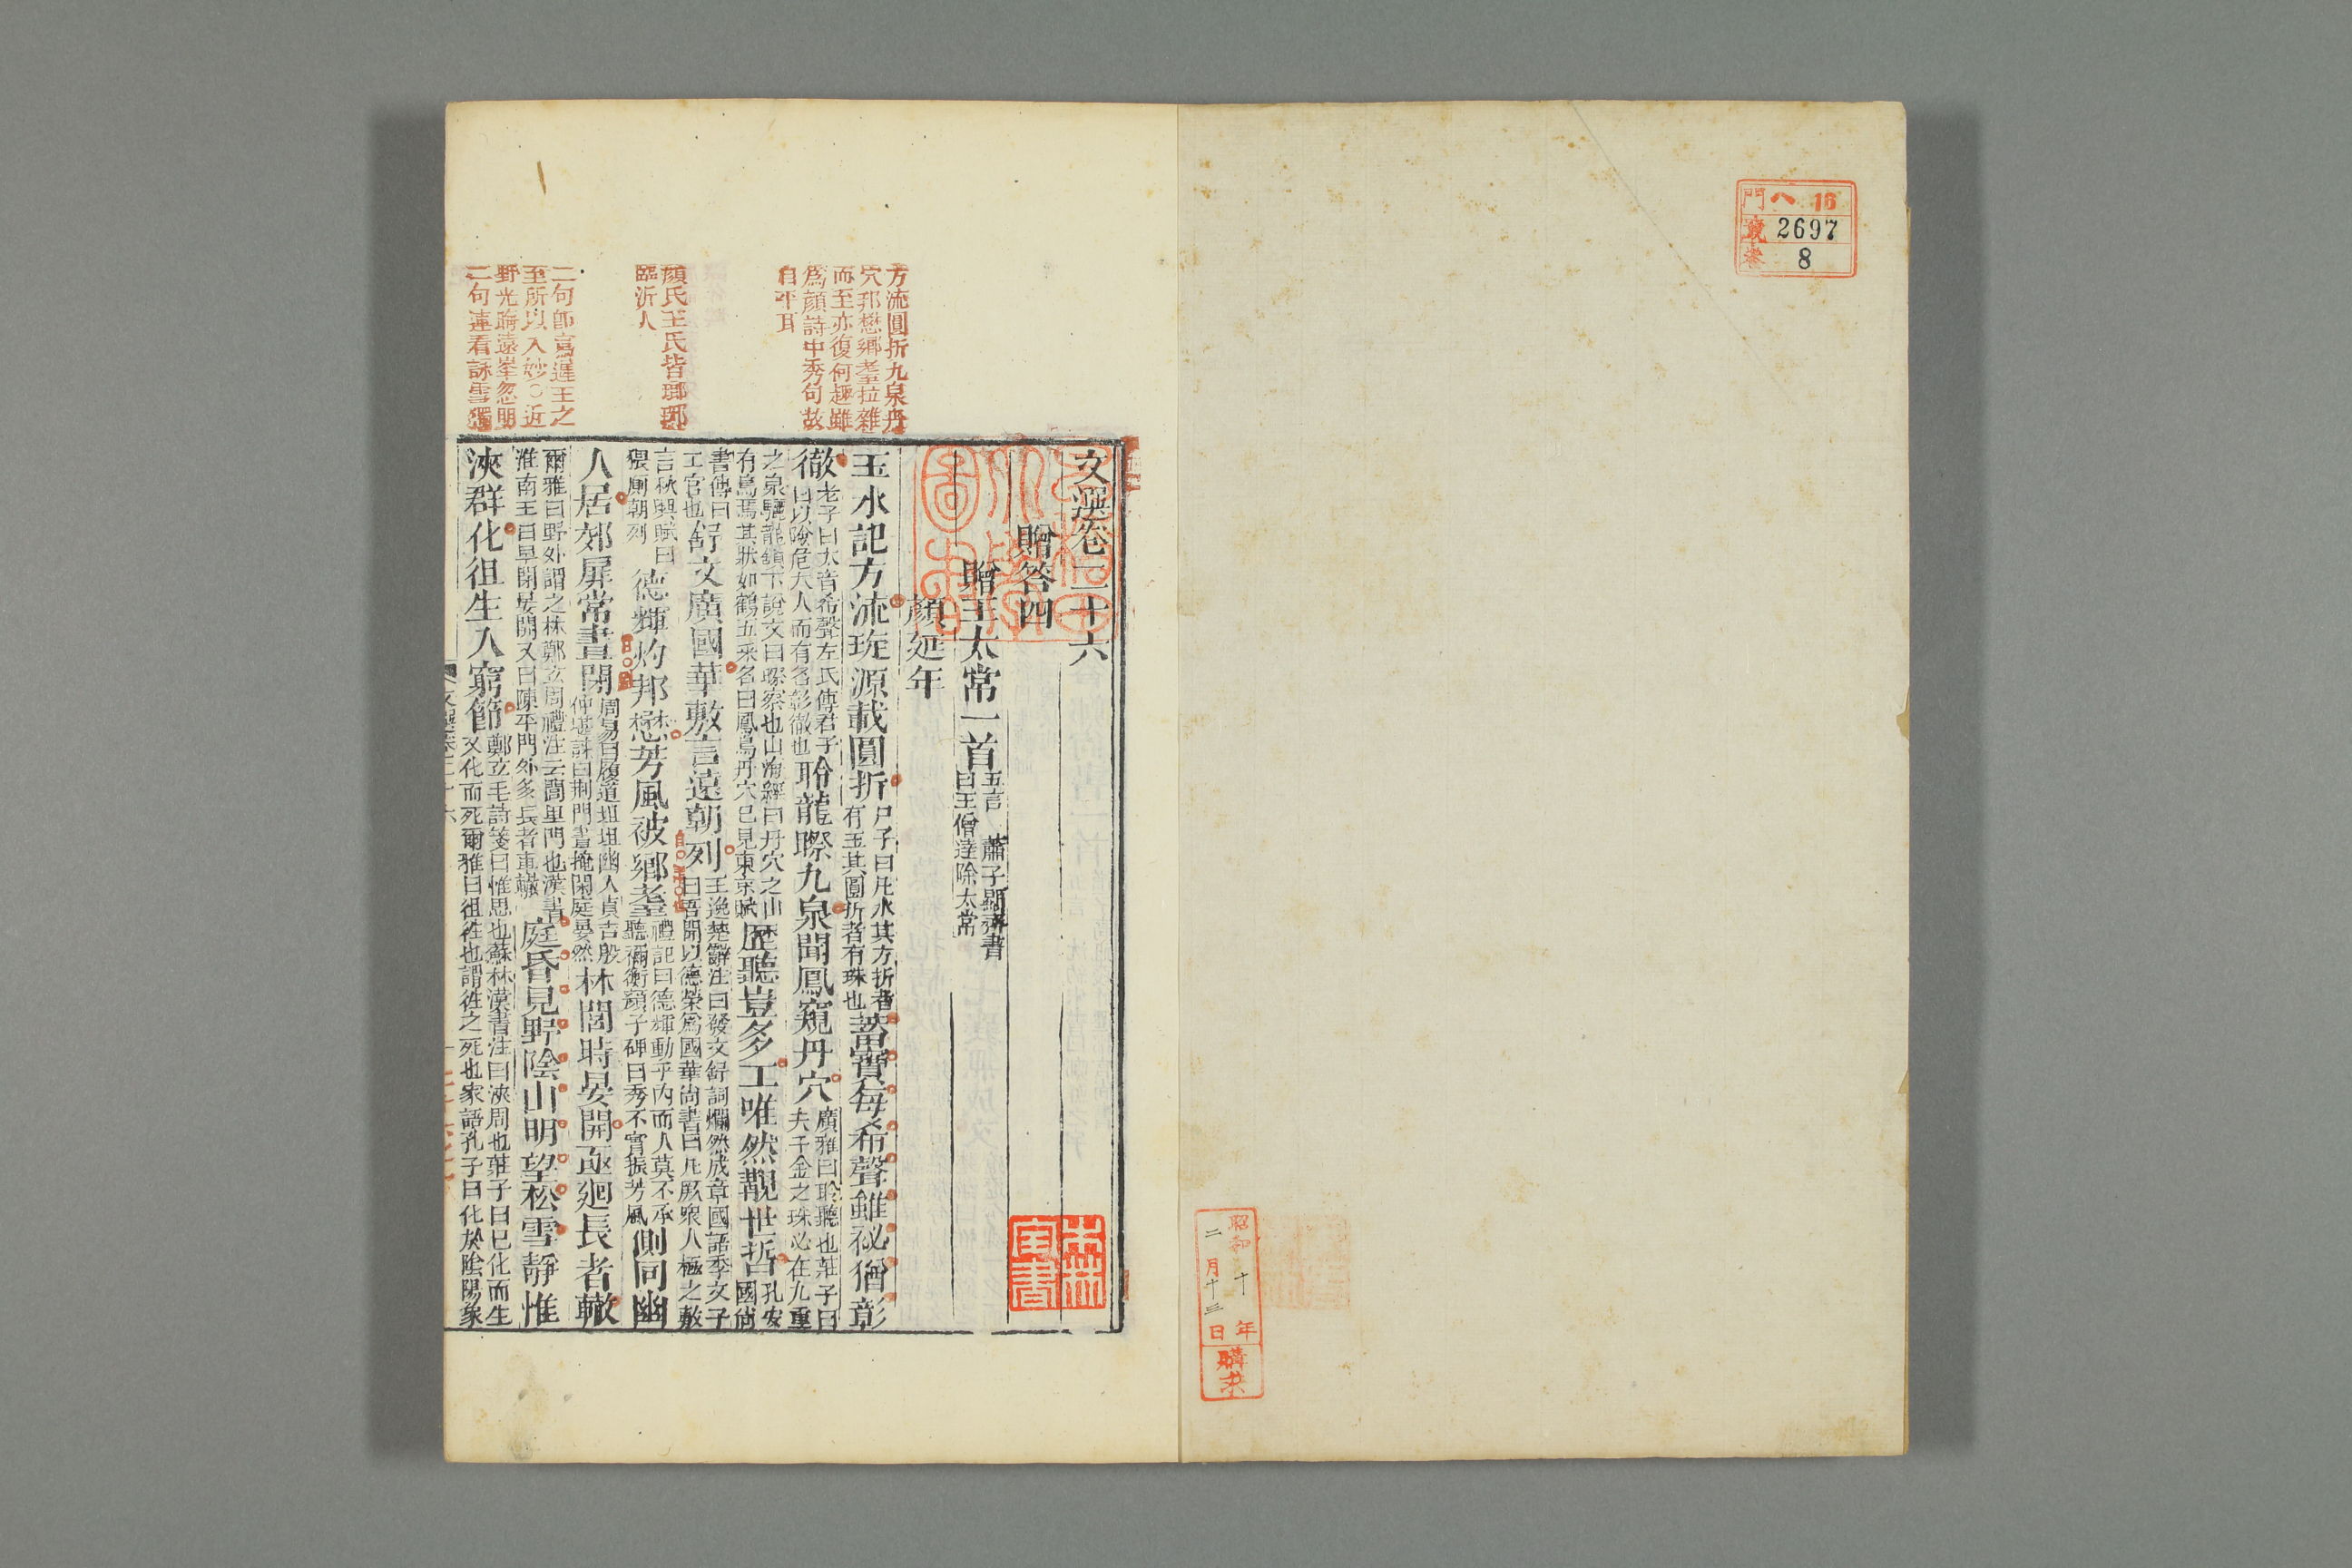 門 八 16
號 2697
卷 8
昭和十年
二月十三日
購求
文選卷二十六
贈答四
贈王太常一首
五言 蕭子顯齊書
曰王僧達除太常
顏延年
玉水記方流琁源載圓折
尸子曰凡水其方折者
有玉其圓折者有珠也
蓄寶每希聲雖祕猶彰
徹
老子曰大音希聲左氏傳君子
曰以險危大人而有名彰徹也
聆龍䁽九泉聞鳳窺丹穴
廣雅曰聆聽也莊子曰
夫千金之珠必在九重
之泉驪龍頷下說文曰䁽察也山海經曰丹穴之山
有鳥焉其狀如鶴五采名曰鳳鳥丹穴已見東京賦
歷聽豈多工唯然覯世哲
孔安
國尚
書傳曰
工官也
舒文廣國華敷言遠朝列
王逸楚辭注曰發文舒詞爛然成章國語季文子
曰吾聞以德榮爲國華尚書曰凡厥衆人極之敷
言秋興賦曰
猥厠朝列
德輝灼邦懋芳風被鄉耋
禮記曰德輝動乎內而人莫不承
聽禰衡顏子碑曰秀不實振芳風
側同幽
人居郊扉常晝閉
周易曰履道坦坦幽人貞吉殷
仲堪誄曰荆門晝掩閑庭晏然
林閭時晏開亟廻長者轍
爾雅曰野外謂之林鄭玄周禮注云閭里門也漢書
淮南王曰早閉晏開又曰陳平門外多長者車轍
庭昏見野陰山明望松雪靜惟
浹群化徂生入窮節
鄭玄毛詩箋曰惟思也蘇林漢書注曰浹周也莊子曰已化而生
又化而死爾雅曰徂往也謂往之死也家語孔子曰化於陰陽象
方流圓折九泉丹
穴邦懋鄉耋拉雜
而至亦復何趣雖
爲顏詩中秀句故
自平耳
顏氏王氏皆瑯琊
臨沂人
二句卽高遲王之
至所以入妙○近
野光晦遠峯忽明
二句連看詠雪獨